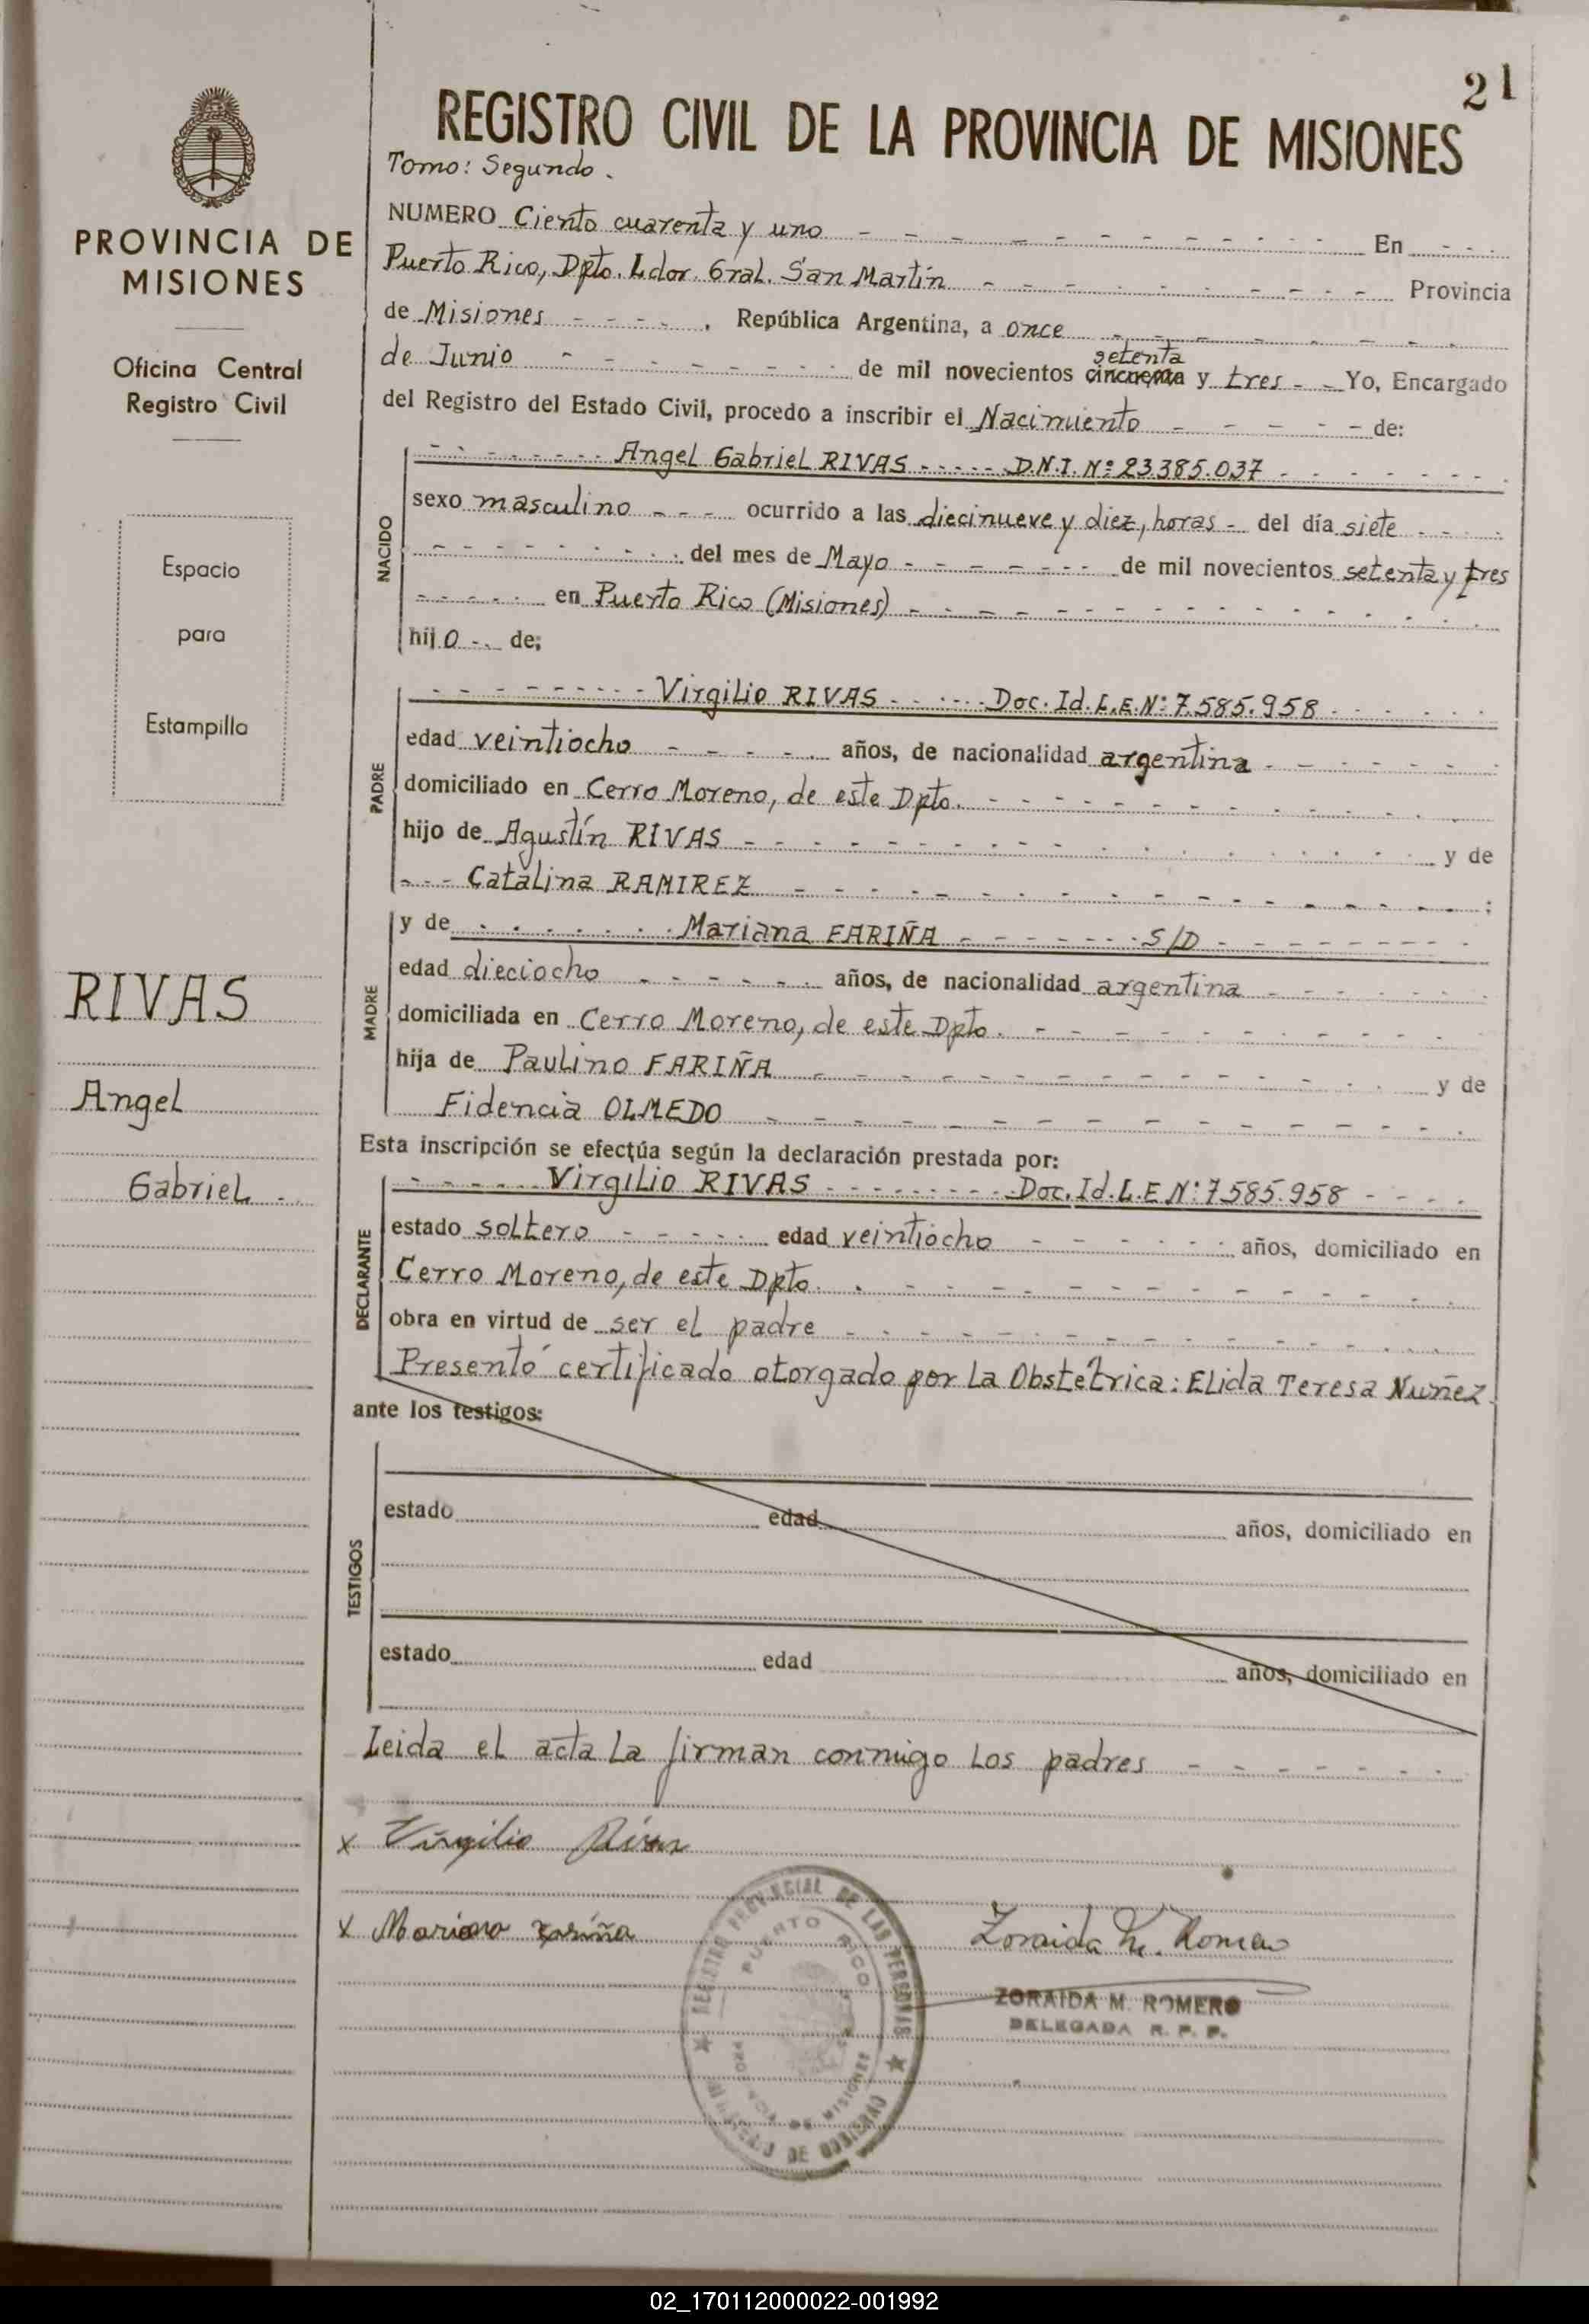 21
REGISTRO CIVIL DE LA PROVINCIA DE MISIONES
Tomo: Segundo.
PROVINCIA DE
MISIONES
Oficina Central
Registro Civil
Espacio
para
Estampilla
RIVAS
Angel
Gabriel
NUMERO Ciento cuarenta y uno En
Puerto Rico, Dpto. Ldor. Gral. San Martín Provincia
de Misiones , República Argentina, a once
setenta
de Junio de mil novecientos cincuenta y tres Yo, Encargado
del Registro del Estado Civil, procedo a inscribir el Nacimiento de:
NACIDO
Angel Gabriel RIVAS D.N.I. Nº 23.385.037
sexo masculino ocurrido a las diecinueve y diez, horas del día siete
del mes de Mayo de mil novecientos setenta y tres
en Puerto Rico (Misiones)
hijo de;
PADRE
Virgilio RIVAS Doc. Id. L.E. Nº 7.585.958
edad veintiocho años, de nacionalidad argentina
domiciliado en Cerro Moreno, de este Dpto.
hijo de Agustín RIVAS y de
Catalina RAMIREZ ;
MADRE
y de Mariana FARIÑA S/D
edad dieciocho años, de nacionalidad argentina
domiciliada en Cerro Moreno, de este Dpto.
hija de Paulino FARIÑA y de
Fidencia OLMEDO
Esta inscripción se efectúa según la declaración prestada por:
DECLARANTE
Virgilio RIVAS Doc. Id. L.E Nº 7.585.958
estado soltero edad veintiocho años, domiciliado en
Cerro Moreno, de este Dpto.
obra en virtud de ser el padre
Presentó certificado otorgado por la Obstetrica: Elida Teresa Nuñez
ante los testigos:
TESTIGOS
estado edad años, domiciliado en
estado edad años, domiciliado en
Leida el acta la firman conmigo los padres
x Virgilio Rivas
x Mariana Fariña
Zoraida M. Romero
ZORAIDA M. ROMERO
DELEGADA R. P. P.
REGISTRO PROVINCIAL DE LAS PERSONAS
PUERTO RICO
PROVINCIA DE MISIONES
MINISTERIO DE GOBIERNO
02_170112000022-001992